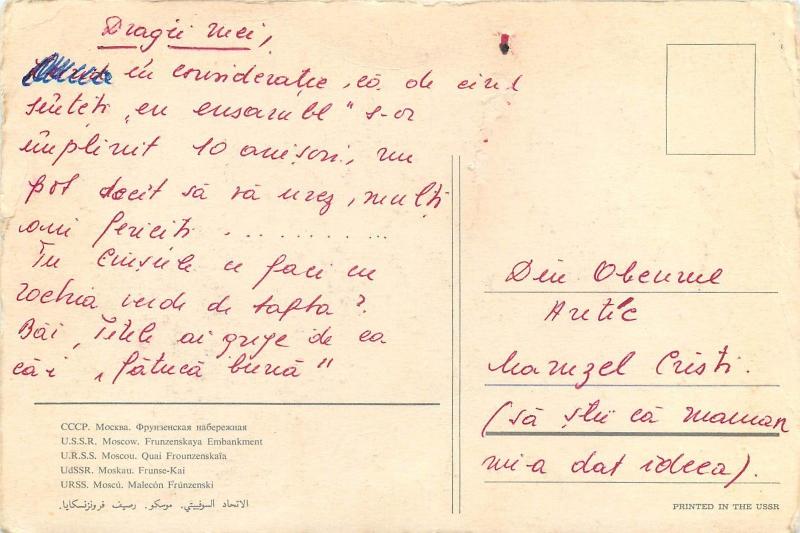 Dragii mei,
în considerație, că de cînd
sînteți „en ensambl" s-or
împlinit 10 anișori, nu
pot decît să vă urez, mulți
ani fericiți . . . . . . . . . .
Tu ce faci cu
rochia verde de tafta?
Băi, ai grije de ea
că-i „fătucă bună"
Din Oceanul
Arctic
Mamzel Cristi.
(să știi că maman
mi-a dat ideea).
СССР. Москва. Фрунзенская набережная
U.S.S.R. Moscow. Frunzenskaya Embankment
U.R.S.S. Moscou. Quai Frounzenskaïa
UdSSR. Moskau. Frunse-Kai
URSS. Moscú. Malecón Frúnzenski
الاتحاد السوفييتي. موسكو. رصيف فرونزنسكايا.
PRINTED IN THE USSR